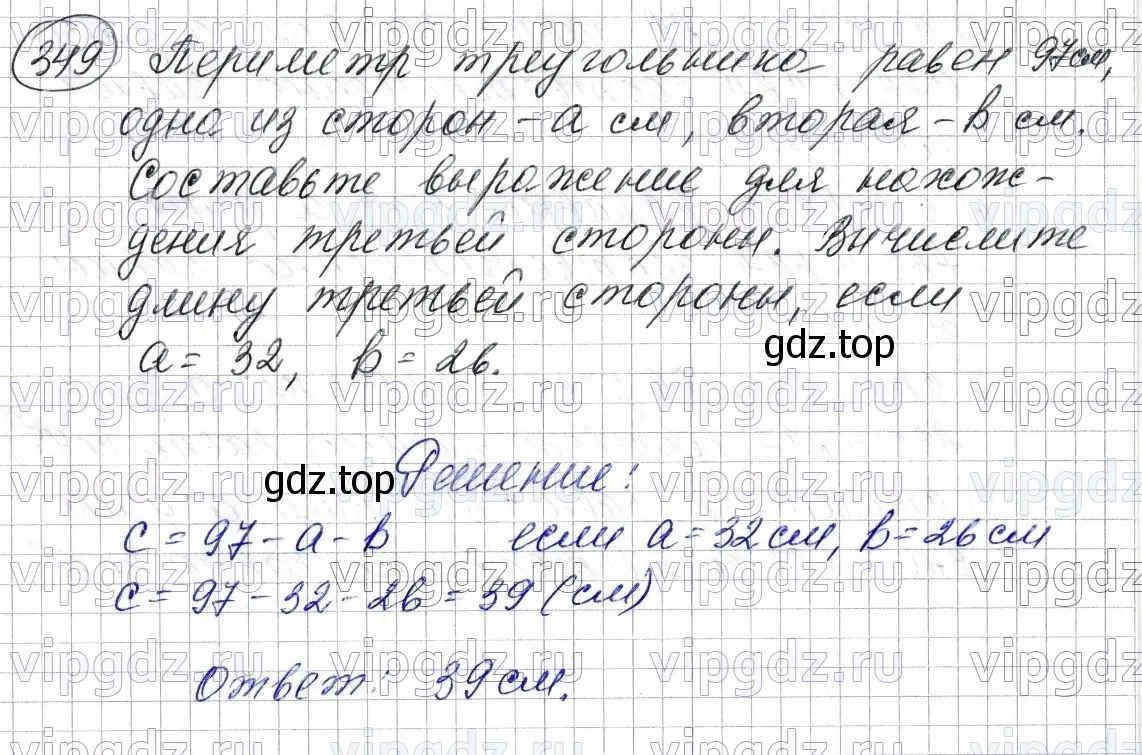 349 Периметр треугольника равен 97см,
одна из сторон - а см, вторая - в см.
Составьте выражение для нахож-
дения третьей стороны. Вычислите
длину третьей стороны, если
а = 32, в = 26.
gdz.top
Решение:
gdz.top
с = 97 - а - в если а = 32 см, в = 26 см
с = 97 - 32 - 26 = 39 (см)
Ответ: 39 см.
vipgdz.ru